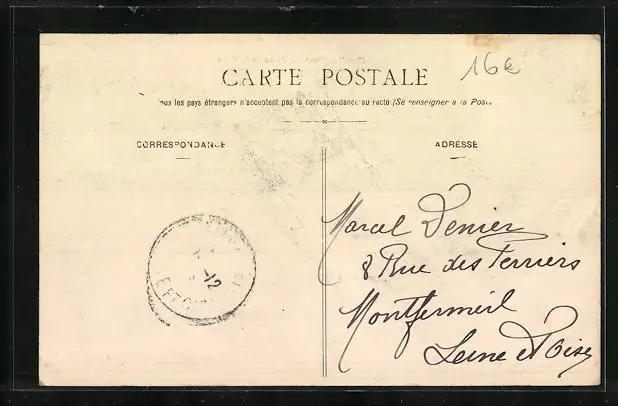 16€
CARTE POSTALE
ous les pays étrangers n'acceptent pas la correspondance au recto (Se renseigner à la Poste
CORRESPONDANCE
ADRESSE
Marcel Denier
8 Rue des Perriers
Montfermeil
Seine et Oise
-12